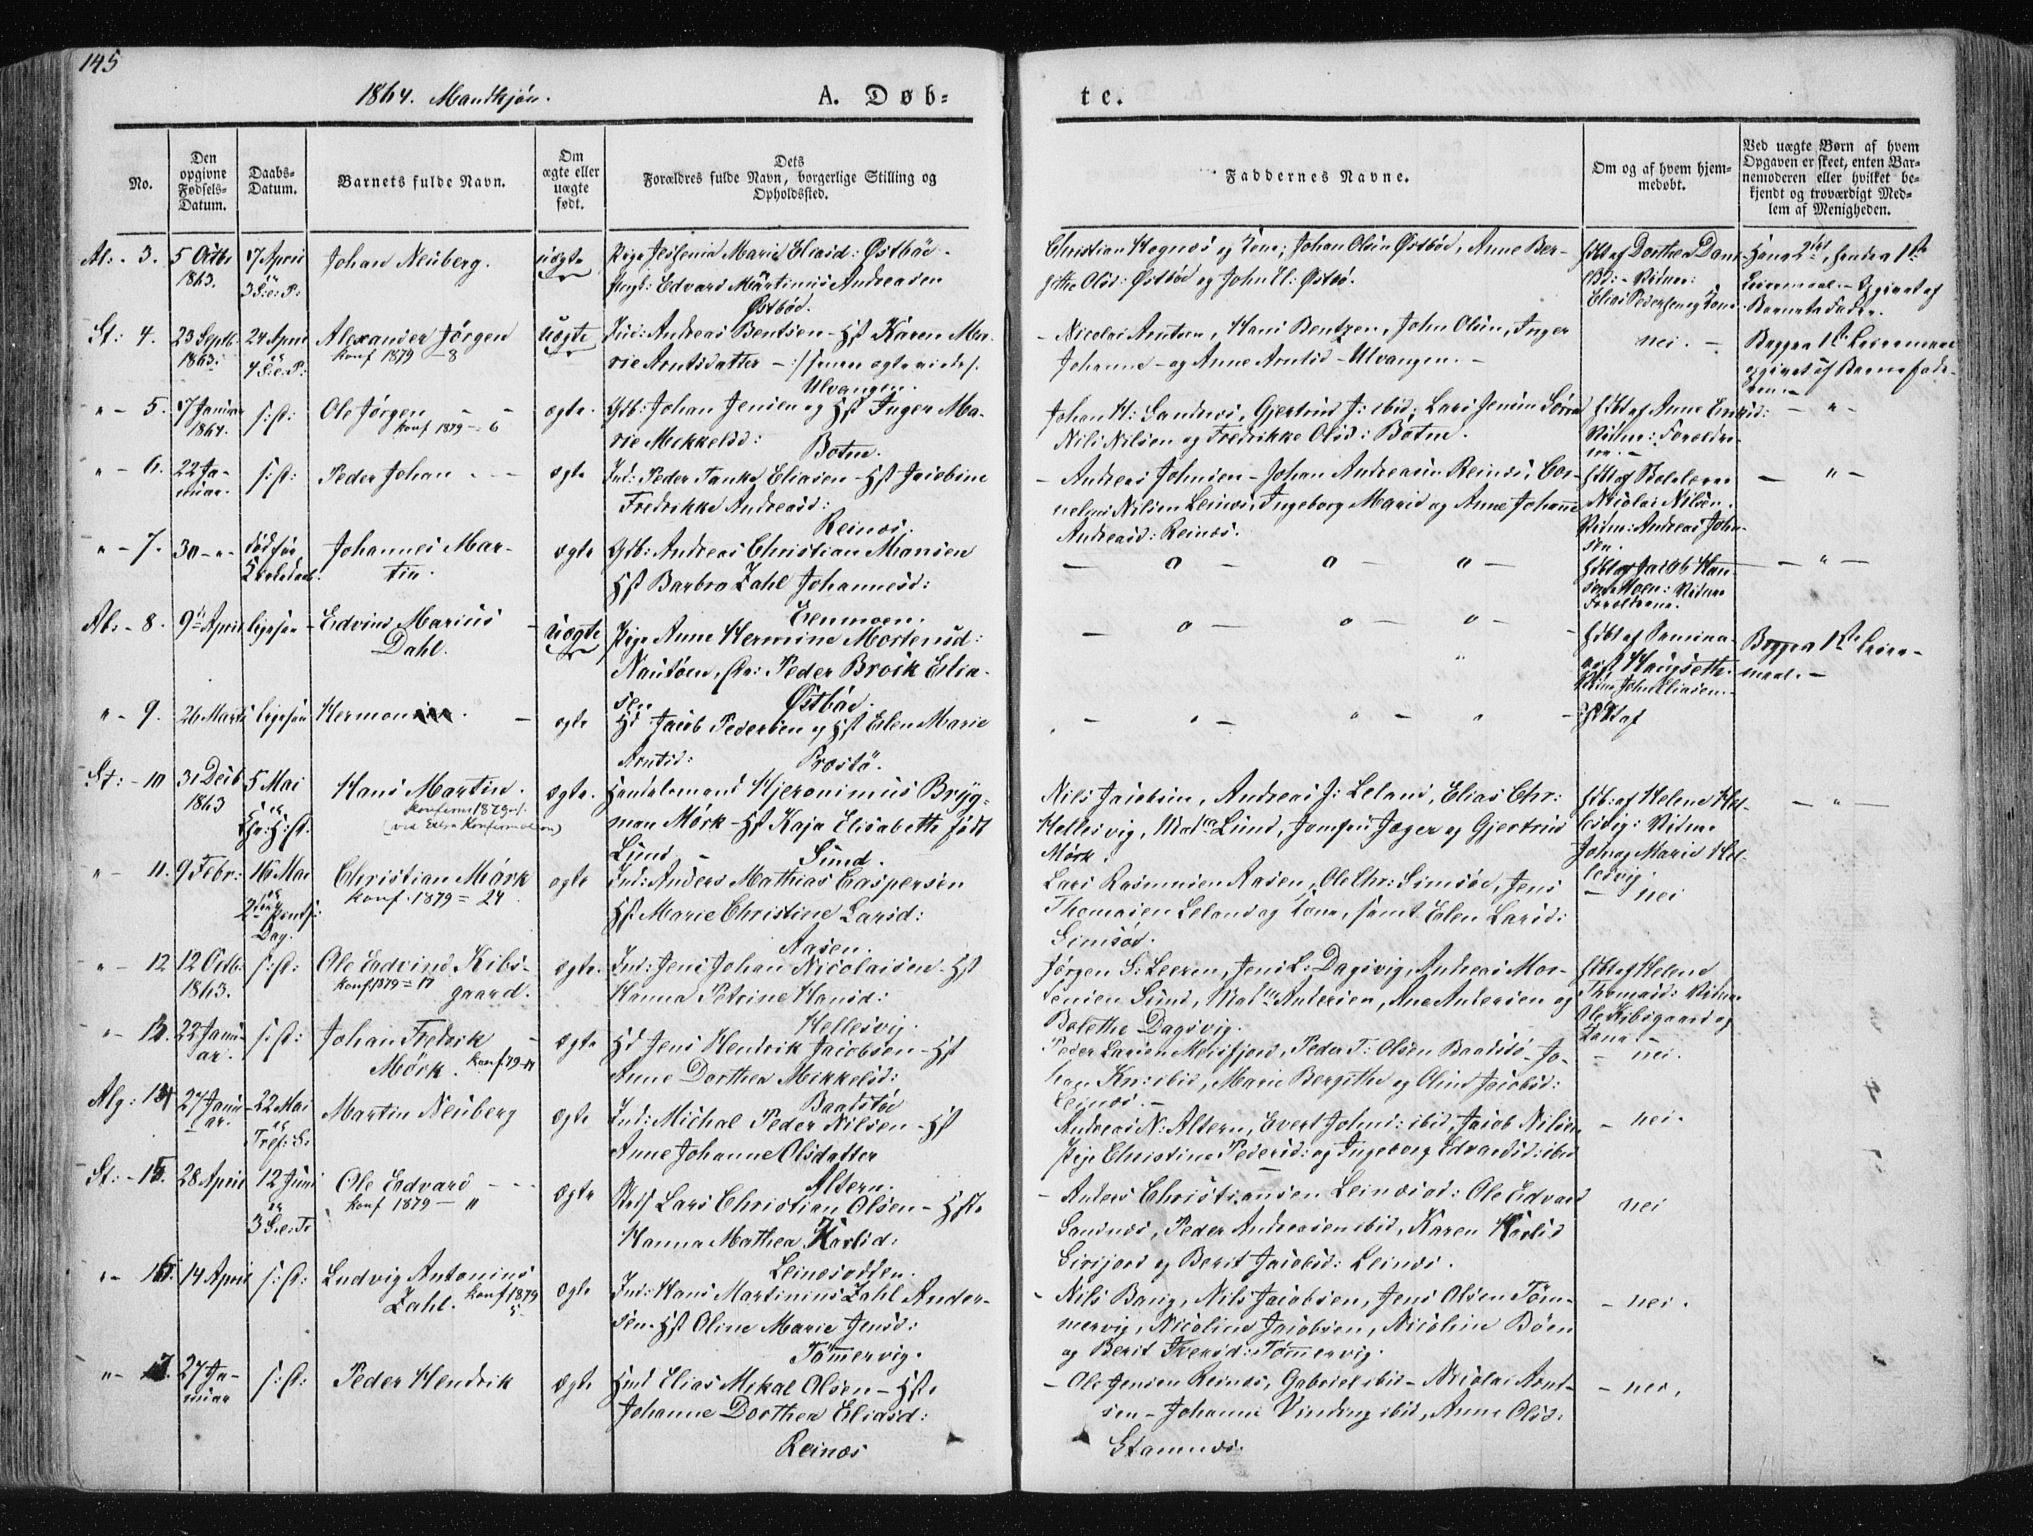 145
1864. Mandkjøn.
A. Døb=
te.
No.
Den opgivne Fødsels-Datum.
Daabs-Datum.
Barnets fulde Navn.
Om ægte eller uægte født.
Dets Forældres fulde Navn, borgerlige Stilling og Opholdssted.
Faddernes Navne.
Om og af hvem hjem-
medøbt.
Ved uægte Børn af hvem
Opgaven er skeet, enten Bar-
nemoderen eller hvilket be-
kjendt og troværdigt Med-
lem af Menigheden.
Al: - 3.
5 Octbr 1863.
17 April
Johan Neüberg.
uægte
Pige Maria Eliasd: Østbøe.
Ungk: Edvard Martinus Andreasen
Østbøe.
Christian Hognæs og Kone; Johan Olsen Østbøe, Anne Ber-
githe Olsd: Østbøe og John El: Østbø.
hdbt af Dorthea
Elias Pedersen og Kone
St: 4.
23 Septb. 1863.
24 April
Alexander Jørgen
konf 1879 - 8
uægte
Ind: Andreas Bentsen - Hst Karen Ma-
rie Arntsdatter
Ulvangen.
- Nicolai Arntsen, Hans Bentzen, John Olsen, Inger
Johanne - og Anne Arntsd - Ulvangen. -
nei. -
Begges 1ste Leiermaal
opgivet af Barnefade-
ren. -
" - 5.
17 Januar 1864.
s: st:
Ole Jørgen
konf 1879 - 6
ægte.
Gdb: Johan Jensen og Hst Inger Ma-
rie Mikkelsd:
Botne.
Johan H: Sandnæs, Gjertrud J: ibid; Lars Jensen
Nils Nilsen og Fredrikke Olsd: Botne.
hdbt af Anne
Vidner: Forældre-
ne. -
- " -
" - 6.
22 Ja-
nuar.
s: st:
Peder Johan
ægte
Ind: Peder Tanke Eliasen - Hst Jacobine
Fredrikke Andreasd:
Reinæs.
- Andreas Johnsen - Johan Andreasen Reinæs, Cor-
nelius Nilsen Leinæs, Ingeborg Marie og Anne Johanne
Andreasd: Reinæs.
Nicolai Nilsen.
Vidn: Andreas John-
sen.
- " -
" - 7.
30 - " -
død før
Johannes Mar-
tin.
ægte
Gdb: Andreas Christian Hansen
Hst Barbro Zahl Johannesd:
Eenmoen.
hdbt af Jacob Han-
sen Vidner
Forældrene.
- " -
Al: - 8.
9de April
ligesaa -
Edvin Marius
Dahl.
uægte
Pige Anne Hermine Mortensd:
Peder Broik Elia-
sen Østbøe.
hdbt af
Haugseth
John Eliasen
Begges 1ste Leier-
maal. -
" - 9.
26 Marts
ligesaa
Hermon
ægte
Hd Jacob Pedersen og Hst Elen Marie
Arntsd: Prøstø.
hdbt af
St: - 10
31 Decb 1863
5 Mai
Hans Martin.
konfirm 1879
(ved Extra Konfirmation)
ægte.
Handelsmand Hjeronimus Bryg-
man Mørk - Hst Kaja Elisabeth født
Lund - Sund.
Nils Jacobsen, Andreas J: Leland, Elias Chr:
Hellesvig, Lund, Jomfru Jæger og Gjertrud
Mørk.
hdb: af Helene Hel-
lesvig: Vidner
John og Marie Hel-
lesvig
- " -
" - 11.
9 Febr:
16 Mai
2den Pintse
Dag.
Christian Mørk
konf. 1879 = 24.
ægte
Ind: Anders Mathias Caspersen
Hst Marie Christine Larsd:
Aasen.
Lars Rasmusen Aasen, Ole Chr: Simsøe, Jens
Thomasen Leland og Kone, samt Elen Larsd:
Simsøe.
- nei
" - 12
12 Octb: 1863.
s: st:
Ole Edvind Kibs-
gaard.
konf 1879 = 17
ægte.
Ind: Jens Johan Nicolaisen - Hst
Hanna Petrine Hansd:
Hellesvig.
Jørgen S: Leeren, Jens L: Dagsvig, Andreas Mor-
tensen Sund, Andersen, Ane Andersen og
Bolethe Dagsvig.
hdbt af Helene
Thomasd: Vidner
Ole Kibsgaard og
Kone. -
" - 13.
22 Janu-
ar.
s: st:
Johan Fredrik
Mørk. konf 79-14
ægte
Hd Jens Hendrik Jacobsen - Hst
Anne Dorthea Mikkelsd:
Baadstøe
Peder Larsen Meisfjord, Peder T: Olsen Baadstø - Jo-
han Kn: ibid, Marie Bergithe og Oline Jacobsd:
Leinæs. -
- nei.
Alg: 14
27 Janu-
ar.
22 Mai
Martin Neüberg
ægte
Ind: Michal Peder Nilsen - Hst
Anne Johanne Olsdatter
Altern.
Andreas N: Altern, Evert Johns: ibid, Jacob Nilsen
Pige Christine Pedersd: og Ingeborg Edvardsd: ibid
- nei.
St: - 15.
28 April
12 Juni
Ole Edvard
konf 1879 - "
ægte
Lars Christian Olsen - Hst
Hanna Mathea Karlsd:
Leinesodden.
- Anders Christiansen Leinæsod: Ole Edvard
Sandnæs, Peder Andreasen ibid, Karen
og Berit Jacobsd: Leinæs.
nei
" - 16:
14 April
s: st:
Ludvig Antonius
Zahl. konf 1879
5.
ægte
Ind: Hans Martinius Zahl Ander-
sen - Hst Oline Marie Jensd:
Tømmervig.
- Nils Nils Jacobsen, Jens Olsen Tøm-
mervig, Nicoline Jacobsen, Nicoline Bøen
og Berit Iversd: Tømmervig.
- nei.
" - 17.
27 Ja-
nuar
s: st:
Peder Hendrik
ægte
Elias Mikal Olsen - Hst
Johanne Dorthea Eliasd:
Reinæs
- Ole Jensen Reinæs, Gabriel ibid - Nicolai Arnt-
sen - Johanne Vinding ibid, Anne Olsd:
Stamnæs.
- nei.